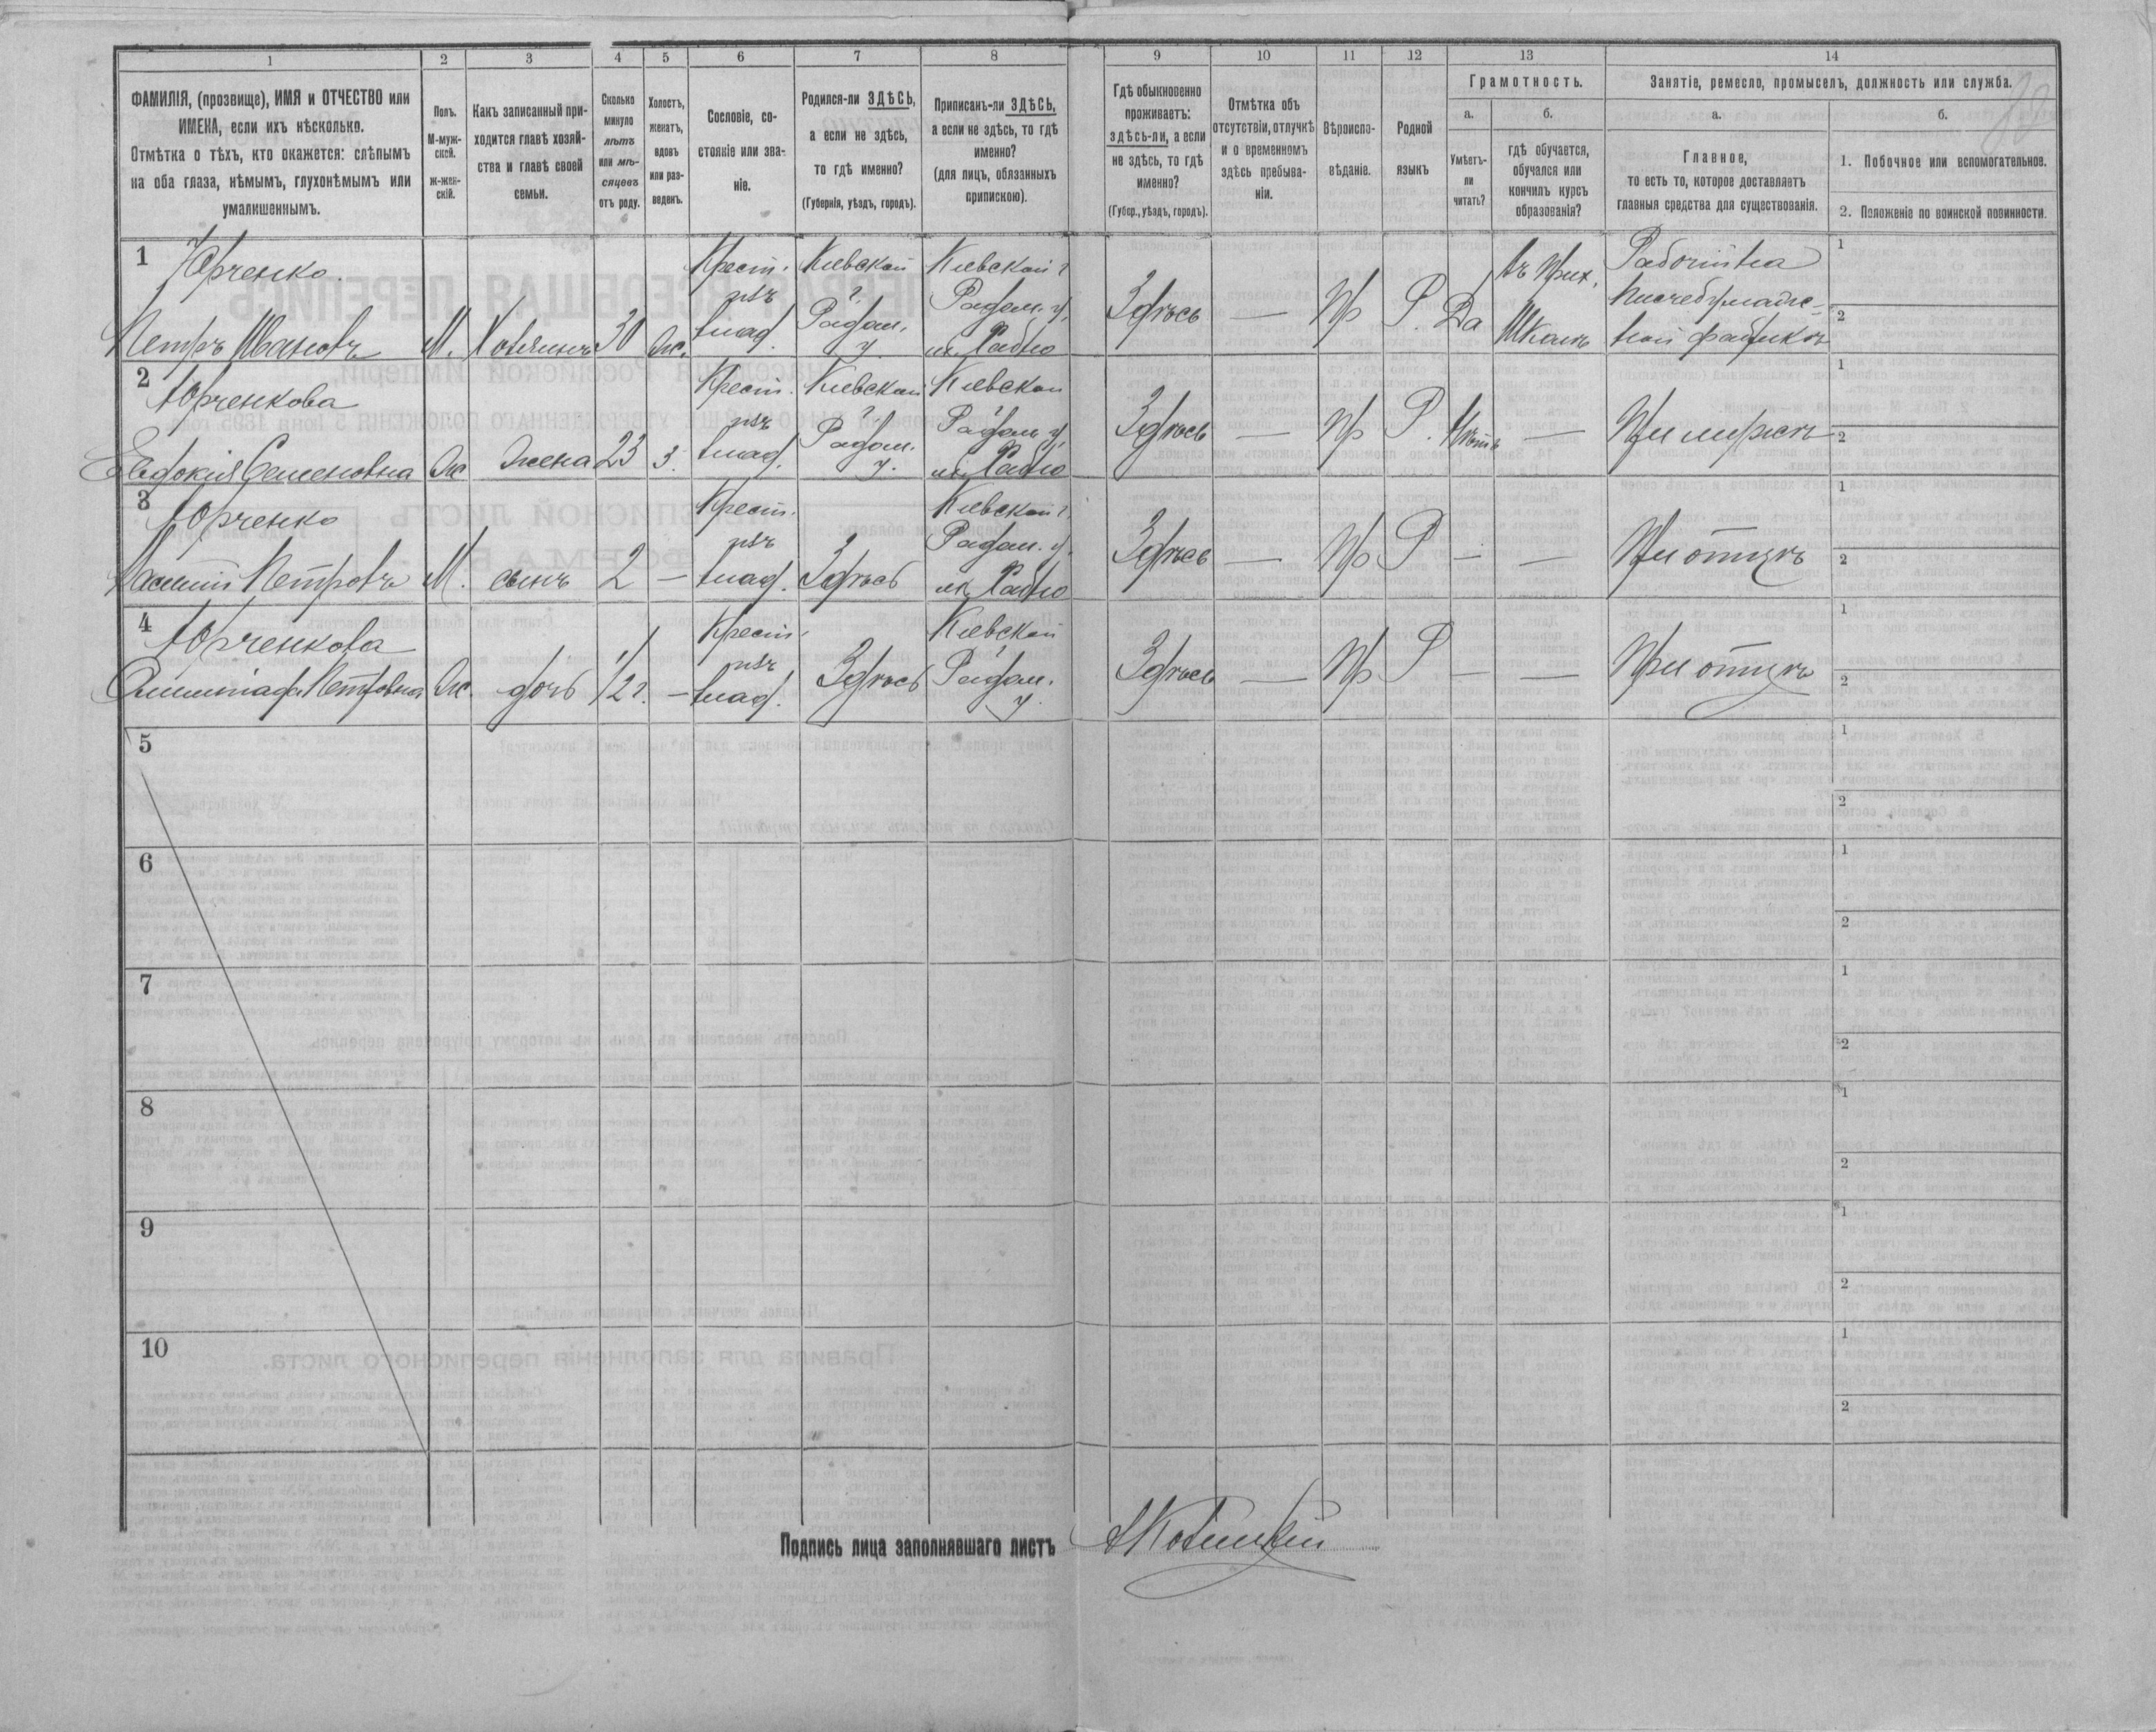 1 2 3 4 5 6 7 8 9 10 11 12 13 14
ФАМИЛІЯ, (прозвище), ИМЯ и ОТЧЕСТВО или
ИМЕНА, если ихъ нѣсколько.
Отмѣтка о тѣхъ, кто окажется: слѣпымъ
на оба глаза, нѣмымъ, глухонѣмымъ или
умалишеннымъ.
Полъ.
М-муж-
ской.
ж-жен-
скій.
Какъ записанный при-
ходится главѣ хозяй-
ства и главѣ своей
семьи.
Сколько
минуло
лѣтъ
или мѣ-
сяцевъ
отъ роду.
Холостъ,
женатъ,
вдовъ
или раз-
веденъ.
Сословіе, со-
стояніе или зва-
ніе.
Родился-ли ЗДѢСЬ,
а если не здѣсь,
то гдѣ именно?
(Губернія, уѣздъ, городъ).
Приписанъ-ли ЗДѢСЬ,
а если не здѣсь, то гдѣ
именно?
(для лицъ, обязанныхъ
припискою).
Гдѣ обыкновенно
проживаетъ:
здѣсь-ли, а если
не здѣсь, то гдѣ
именно?
(Губер., уѣздъ, городъ).
Отмѣтка объ
отсутствіи, отлучкѣ
и о временномъ
здѣсь пребыва-
ніи.
Вѣроиспо-
вѣданіе.
Родной
языкъ
Грамотность.
а.
Умѣетъ-
ли
читать?
б.
гдѣ обучается,
обучался или
кончилъ курсъ
образованія?
Занятіе, ремесло, промыселъ, должность или служба.
а.
Главное,
то есть то, которое доставляетъ
главныя средства для существованія.
б.
1. Побочное или вспомогательное.
2. Положеніе по воинской повинности.
1 Юрченко. Крест. Кіевской Кіевской г. въ Прих. Рабочій на 1
изъ г. Радом. у. Писчебумаж-
Петръ Ивановъ М. Хозяинъ 30 ж. влад. Радом. у. м. Здѣсь — Пр Р. Да Школѣ ной фабрикѣ 2
2 Юрченкова Крест. Кіевской Кіевской 1
изъ г. Радом. у.
Евдокія Семеновна Ж Жена 23 З. влад. Радом. у. м. Здѣсь — Пр Р. Нѣтъ — При мужѣ 2
3 Юрченко Крест. Кіевской г. 1
изъ Радом. у.
Василій Петровъ М. сынъ 2 — влад. Здѣсь м. Здѣсь — Пр Р — — При отцѣ 2
4 Юрченкова Крест. Кіевской 1
изъ г.
Олимпіада Петровна Ж. дочь 1/2 г. — влад. Здѣсь Радом. у. Здѣсь — Пр Р — — При отцѣ 2
5 1
2
6 1
2
7 1
2
8 1
2
9 1
2
10 1
2
Подпись лица заполнявшаго листъ